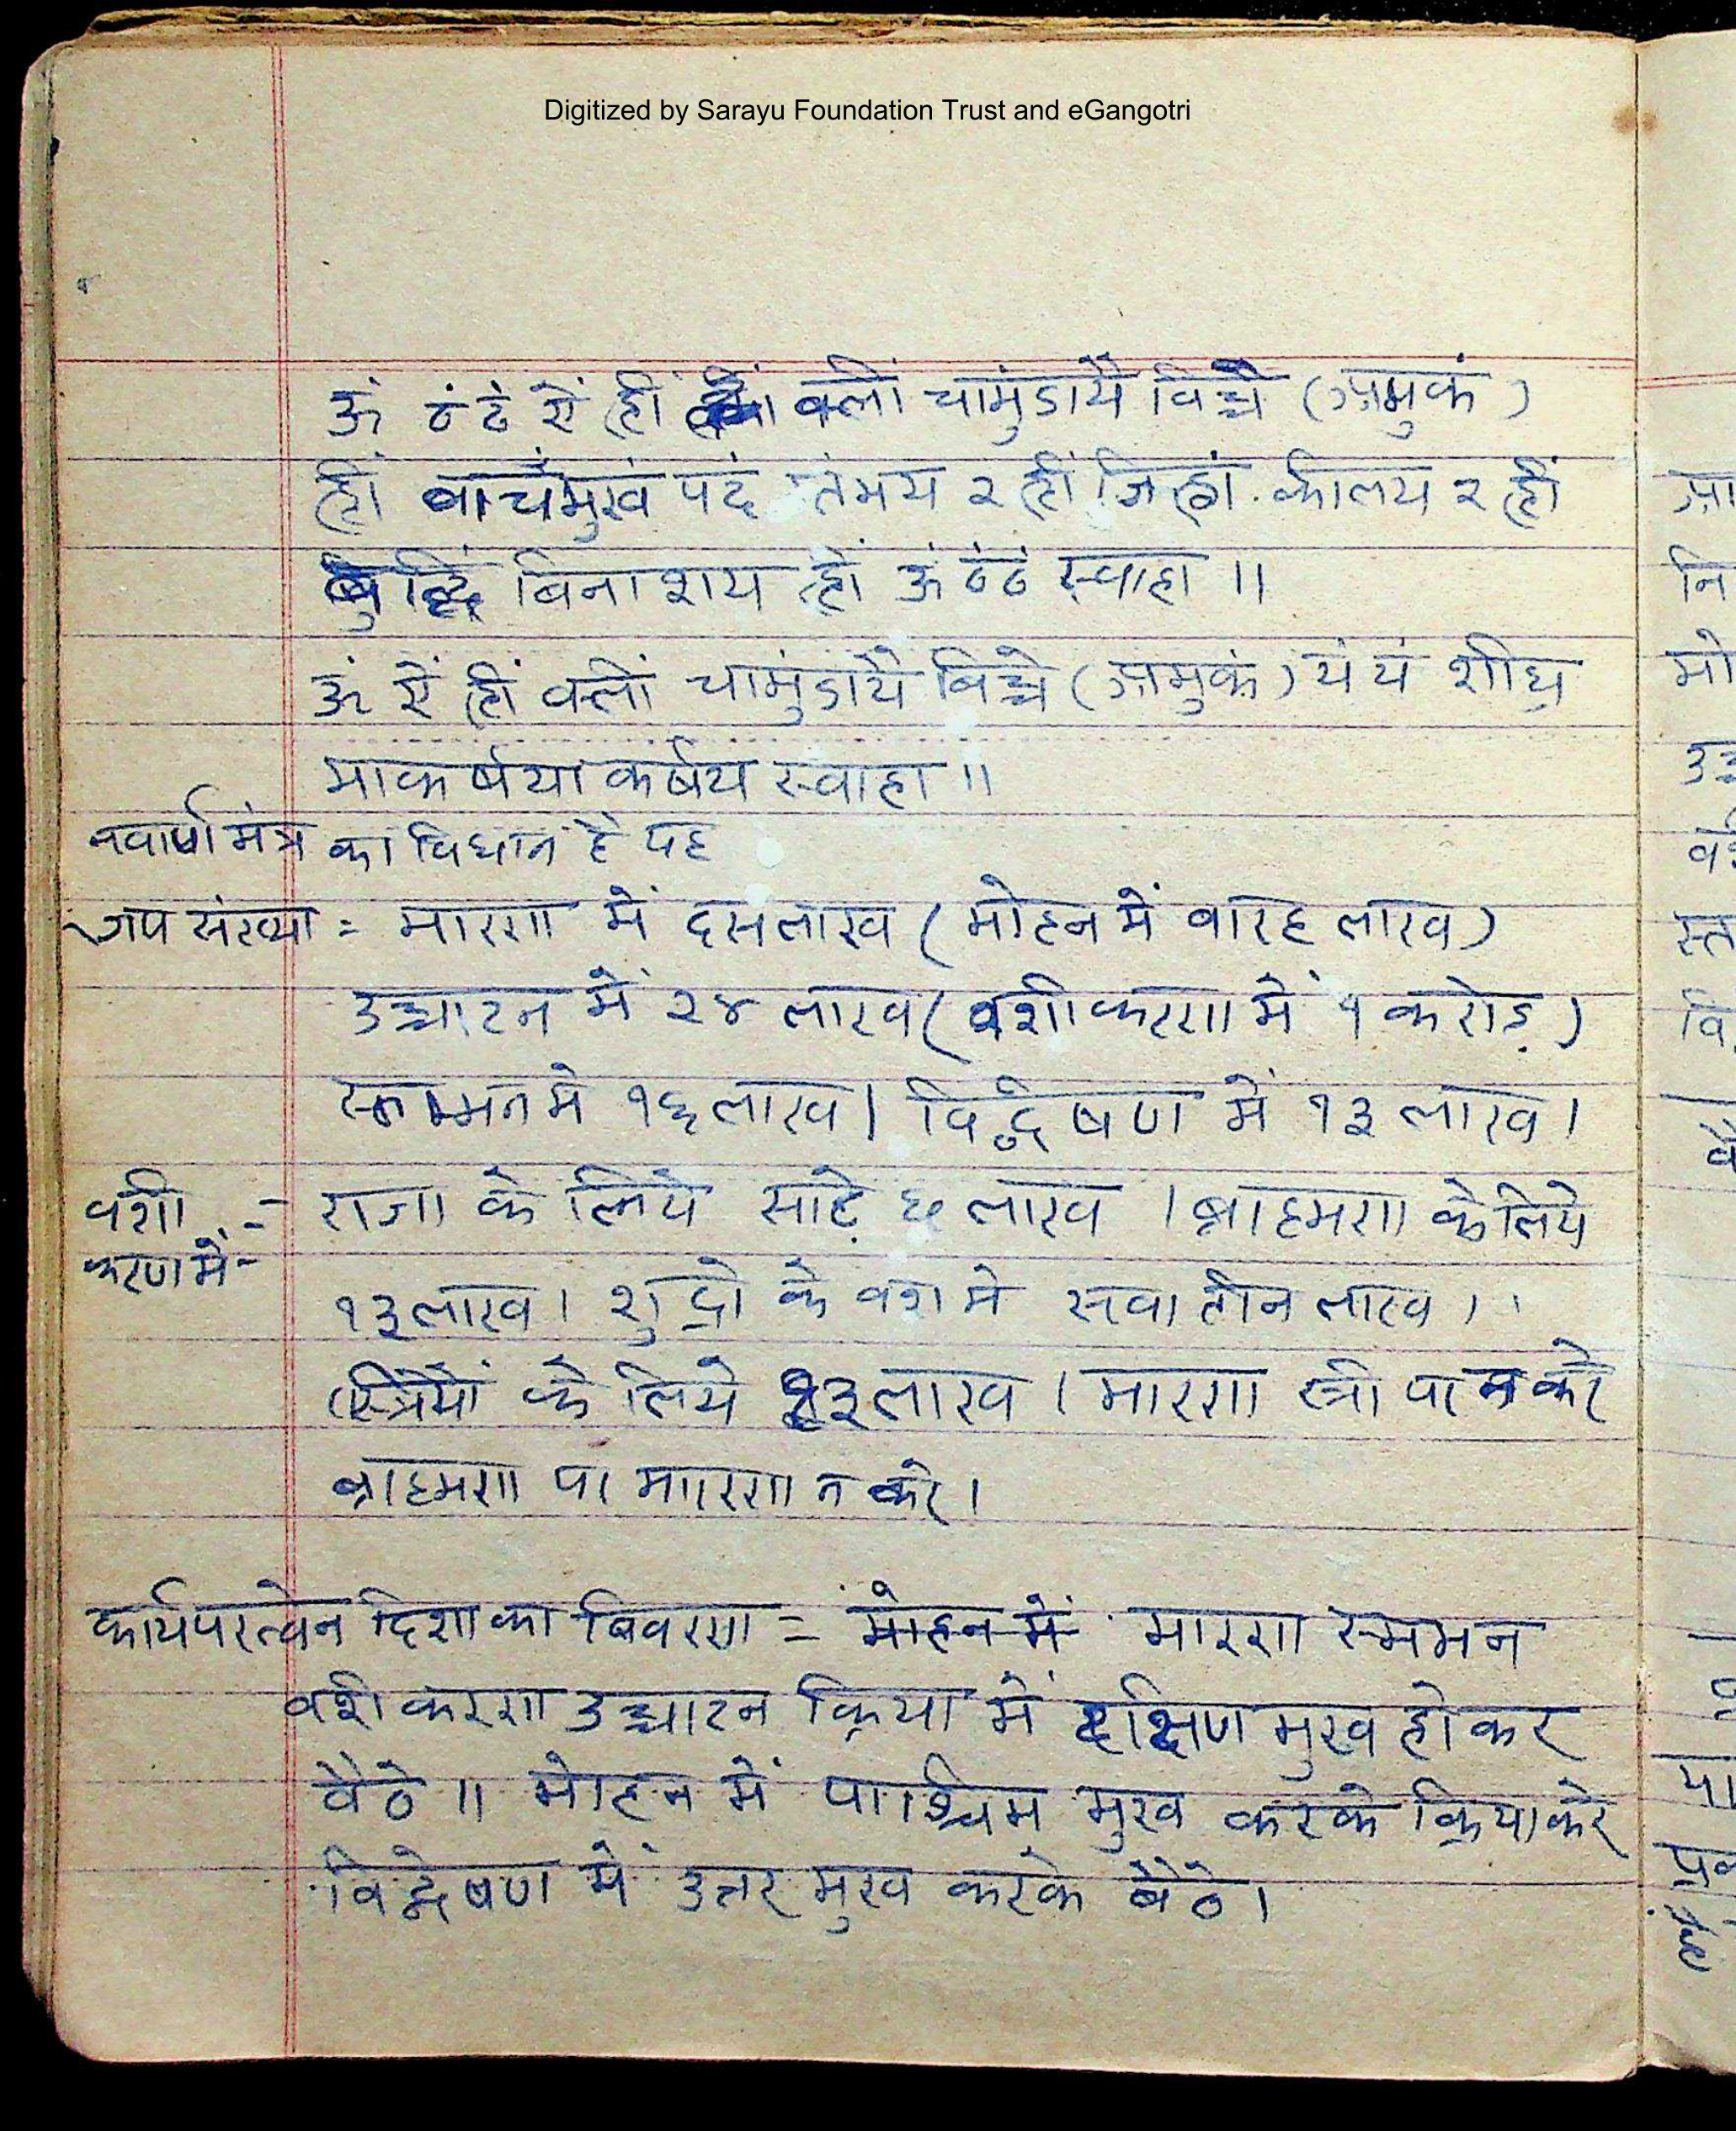 Digitized by Sarayu Foundation Trust and eGangotri
ॐ ठं ठं ऐं ह्रीं क्लीं चामुंडायै विच्चे (अमुकं)
ह्रीं वाचंमुखं पदं स्तंभय २ ह्रीं जिह्वां कीलय २ ह्रीं
बुद्धिं बिनाशय ह्रीं ॐ ठं ठं स्वाहा ॥
ॐ ऐं ह्रीं क्लीं चामुंडायै विच्चे (अमुकं) यं यं शीघ्र
माकर्षयाकर्षय स्वाहा ॥
नवार्ण मंत्र का विधान है यह
जप संख्या = मारण में दस लाख (मोहन में वारह लाख)
उच्चाटन में २४ लाख (वशीकरण में १ करोड़)
स्तम्भन मे १६ लाख। विद्वेषण में १३ लाख।
वशी - राजा के लिये साढ़े छ लाख । ब्राहमण के लिये
करण में-
१३ लाख। शुद्रो के वश मे सवा तीन लाख।
स्त्रियों के लिये १३ लाख। मारण स्त्री पा न करे
ब्राहमण पा मारण न करे।
कार्यपरत्वेन दिशा का विवरण = मोहन में मारण स्तम्भन
वशीकरण उच्चाटन क्रिया में दक्षिण मुख होकर
वैठे ॥ मोहन में पाश्चिम मुख करके क्रिया करे
विद्वेषण में उत्तर मुख करके बैठे।